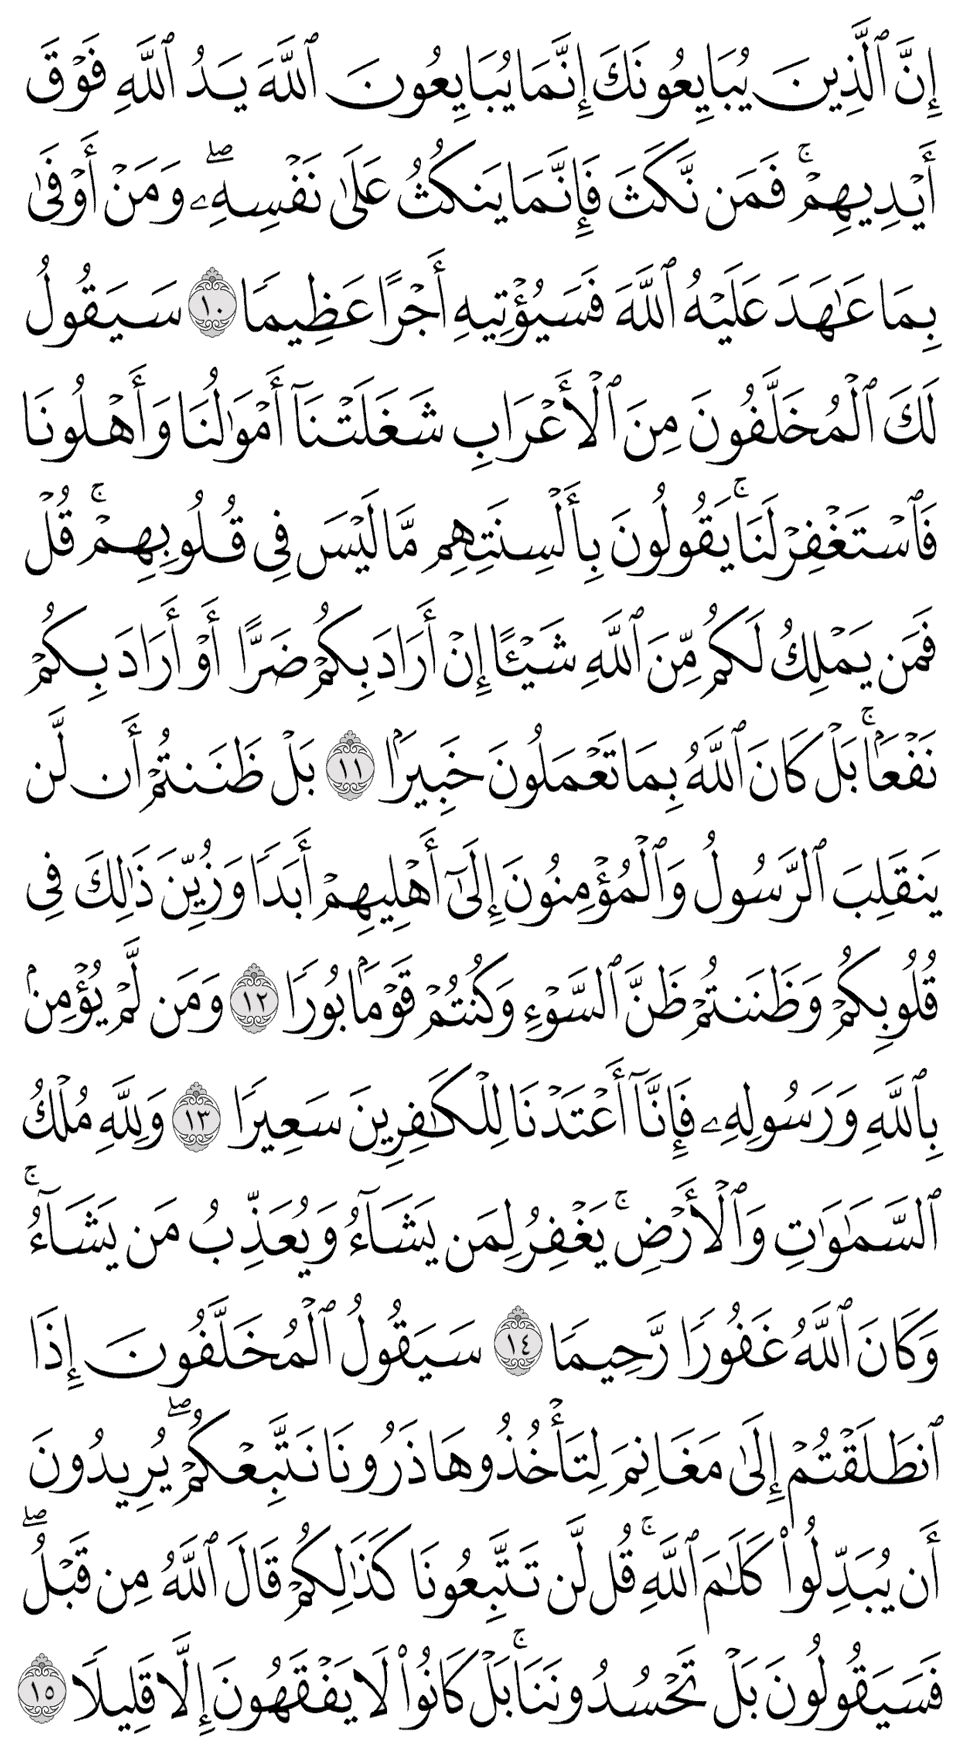 إِنَّ ٱلَّذِينَ يُبَايِعُونَكَ إِنَّمَا يُبَايِعُونَ ٱللَّهَ يَدُ ٱللَّهِ فَوۡقَ
أَيۡدِيهِمۡۚ فَمَن نَّكَثَ فَإِنَّمَا يَنكُثُ عَلَىٰ نَفۡسِهِۦۖ وَمَنۡ أَوۡفَىٰ
بِمَا عَٰهَدَ عَلَيۡهُ ٱللَّهَ فَسَيُؤۡتِيهِ أَجۡرًا عَظِيمٗا ١٠ سَيَقُولُ
لَكَ ٱلۡمُخَلَّفُونَ مِنَ ٱلۡأَعۡرَابِ شَغَلَتۡنَآ أَمۡوَٰلُنَا وَأَهۡلُونَا
فَٱسۡتَغۡفِرۡ لَنَاۚ يَقُولُونَ بِأَلۡسِنَتِهِم مَّا لَيۡسَ فِي قُلُوبِهِمۡۚ قُلۡ
فَمَن يَمۡلِكُ لَكُم مِّنَ ٱللَّهِ شَيۡـًٔا إِنۡ أَرَادَ بِكُمۡ ضَرًّا أَوۡ أَرَادَ بِكُمۡ
نَفۡعَۢاۚ بَلۡ كَانَ ٱللَّهُ بِمَا تَعۡمَلُونَ خَبِيرَۢا ١١ بَلۡ ظَنَنتُمۡ أَن لَّن
يَنقَلِبَ ٱلرَّسُولُ وَٱلۡمُؤۡمِنُونَ إِلَىٰٓ أَهۡلِيهِمۡ أَبَدٗا وَزُيِّنَ ذَٰلِكَ فِي
قُلُوبِكُمۡ وَظَنَنتُمۡ ظَنَّ ٱلسَّوۡءِ وَكُنتُمۡ قَوۡمَۢا بُورٗا ١٢ وَمَن لَّمۡ يُؤۡمِنۢ
بِٱللَّهِ وَرَسُولِهِۦ فَإِنَّآ أَعۡتَدۡنَا لِلۡكَٰفِرِينَ سَعِيرٗا ١٣ وَلِلَّهِ مُلۡكُ
ٱلسَّمَٰوَٰتِ وَٱلۡأَرۡضِۚ يَغۡفِرُ لِمَن يَشَآءُ وَيُعَذِّبُ مَن يَشَآءُۚ
وَكَانَ ٱللَّهُ غَفُورٗا رَّحِيمٗا ١٤ سَيَقُولُ ٱلۡمُخَلَّفُونَ إِذَا
ٱنطَلَقۡتُمۡ إِلَىٰ مَغَانِمَ لِتَأۡخُذُوهَا ذَرُونَا نَتَّبِعۡكُمۡۖ يُرِيدُونَ
أَن يُبَدِّلُواْ كَلَٰمَ ٱللَّهِۚ قُل لَّن تَتَّبِعُونَا كَذَٰلِكُمۡ قَالَ ٱللَّهُ مِن قَبۡلُۖ
فَسَيَقُولُونَ بَلۡ تَحۡسُدُونَنَاۚ بَلۡ كَانُواْ لَا يَفۡقَهُونَ إِلَّا قَلِيلٗا ١٥